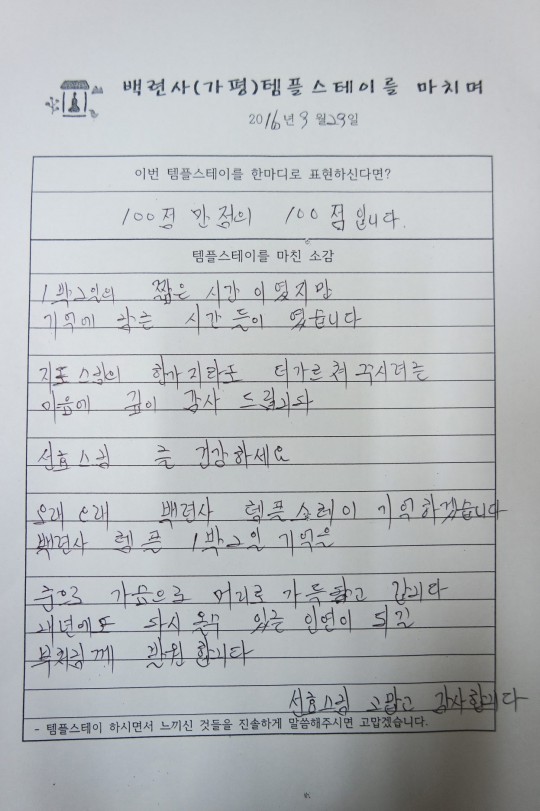 백련사(가평)템플스테이를 마치며
2016년 3월29일
이번 템플스테이를 한마디로 표현하신다면?
100점 만점의 100점 입니다.
템플스테이를 마친 소감
1박2일의 짧은 시간 이였지만
기억에 남는 시간 들이 였습니다
지도스님의 한가지라도 더가르쳐 주시려는
마음에 깊이 감사 드립니다
선효스님 늘 건강하세요
오래 오래 백련사 템플스테이 기억하겠습니다
백련사 템플 1박2일 기억을
눈으로 가슴으로 머리로 가득 담고 갑니다
내년에도 다시 올수 있는 인연이 되길
부처님께 발원 합니다
선효스님 고맙고 감사합니다
- 템플스테이 하시면서 느끼신 것들을 진솔하게 말씀해주시면 고맙겠습니다.